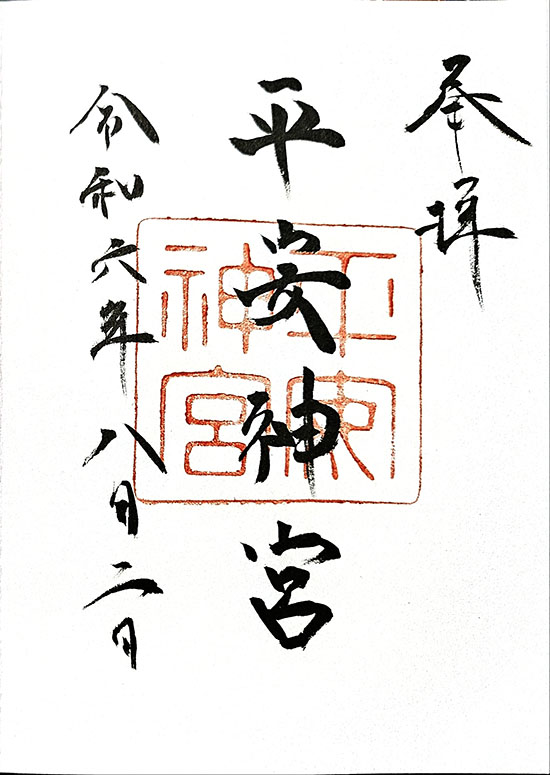 奉拝
平安神宮
令和六年八月二日
平安神宮